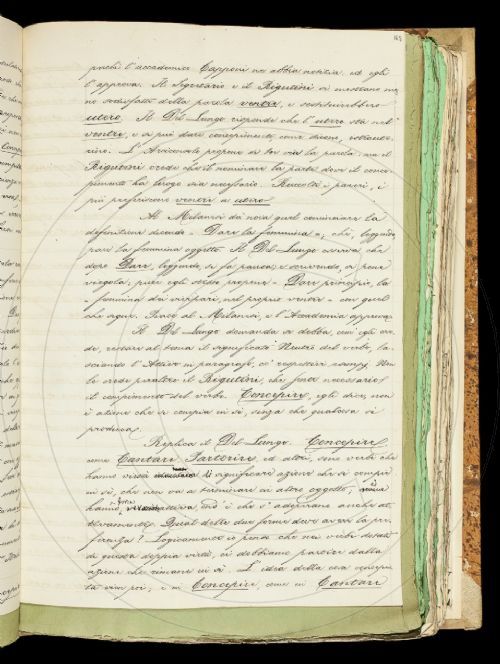 perchè l'accademico Capponi ne abbia notizia, ed egli
l'approva. Il Segretario e il Rigutini si mostano me
no sodisfatti della parola ventre, e sostituirebbero
utero. Il Del Lungo risponde che l'utero sta nel
ventre, e si può dare concepimento, come dicono,
rino. L'Arciconsolo propone di tor via la parola, ma il
Rigutini crede che il nominare la parte dove il conce
pimento ha luogo sia necessario. Raccolti i pareri, i
più preferiscono ventre a utero.
Al Milanesi dà noia quel cominciare la
definizione dicendo - Darsi la femmina -, chè, leggendo,
pare la femmina oggetto. Il Del Lungo osserva che
dopo Darsi, leggendo, si fa pausa, e scrivendo, si pone
virgola; pure egli stesso propone - Darsi principio, la
femmina dei vivipari, nel proprio ventre - con quel
che segue. Piace al Milanesi, e l'Accademia approva.
Il Del Lungo domanda se debba, com'egli cre
de, restare al tema il significato Neutro del verbo, la
sciando l'Attivo in paragrafo, co' respettivi esempj. Non
lo crede paratore il Rigutini, che sente necessario
il compimento del verbo. Concepire, egli dice, non
è azione che si compia in sè, senza che qualcosa si
produca.
Replica il Del Lungo. Concepire,
come Cantare, Partorire, ed altri, sono verbi che
hanno virtù di significare azione che si compie
in sè, che non va a terminare in altro oggetto;
hanno, forza attiva, ciò è che s'adoprano anche at
tivamente. Quale delle due forme deve avere la pre
ferenza? Logicamente io penso che nei verbi dotati
di questa doppia virtù, si debbano partire dalla
azione che rimane in sè. L'idea della cosa concepu
ta vien poi; e in Concepire, come in Cantare